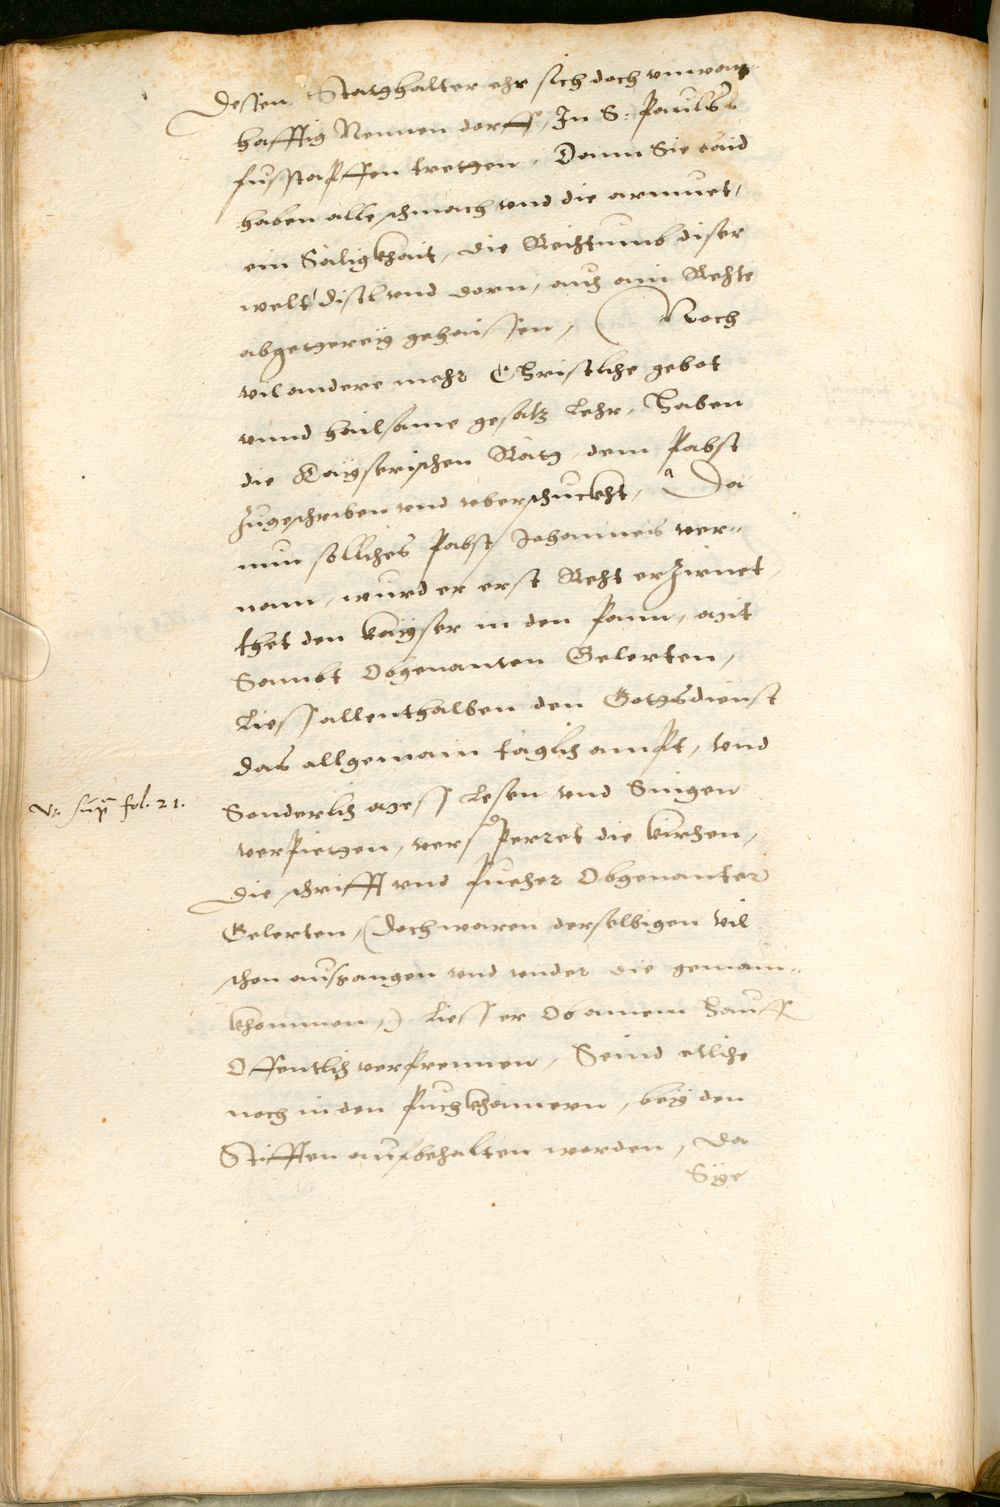 Dessen Statthalter ehr sich doch unwar¬
hafftig Nennen dorff, In S: Pauls
fusstapffen tretten, Dann Sie baid
haben alle schmach und die armuet,
ein Säligkhait, die Reichtumb diser
welt distl und dorn, auch ain Rechte
abgetterey gehaissen, (Noch
vil andere mehr Christliche gebot
vnnd hailsame gesatz Lehr, Haben
die Kayserischen Räth, dem Pabst
zugeschriben vnd vberschuckht, Da
nun solliches Pabst Johannes ver¬
nam, wurd er erst Recht erzirnet,
thet den kayser in den pann, mit
Sambt Obgenanten Gelerten,
Liess allenthalben den Gottsdienst
das allgemain täglich ampt, vnd
Sonderlich mess Lesen vnd Singen
verpietten, versperret die kirchen,
V. supr fol. 21.
Die schrifft vnd puecher Obgenanter
Gelerten, (Doch waren derselbigen vil
schon aussgangen vnd vnder die gemain¬
khommen,) Liess er Ob ainem Hauff
Offentlich verprennen, Seind etliche
noch in den puechkhamern, bey den
Stifften aufbehalten worden, Da
Sye